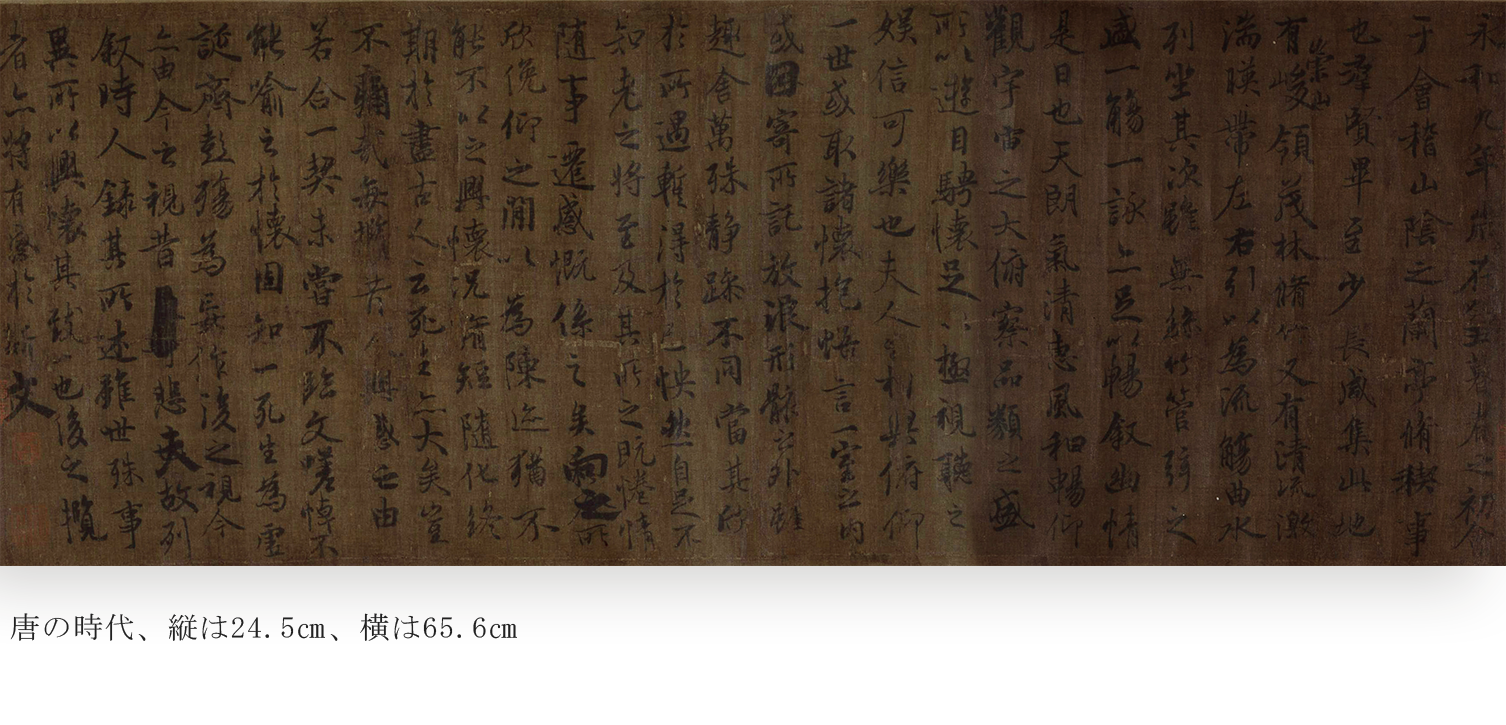 永和九年歲在癸丑暮春之初會
于會稽山陰之蘭亭脩稧事
也羣賢畢至少長咸集此地
有崇山峻領茂林脩竹又有清流激
湍暎帶左右引以為流觴曲水
列坐其次雖無絲竹管弦之
盛一觴一詠亦足以暢叙幽情
是日也天朗氣清惠風和暢仰
觀宇宙之大俯察品類之盛
所以遊目騁懷足以極視聽之
娛信可樂也夫人之相與俯仰
一世或取諸懷抱悟言一室之内
或因寄所託放浪形骸之外雖
趣舍萬殊静躁不同當其欣
於所遇暫得於己怏然自足不
知老之將至及其所之既惓情
隨事遷感慨係之矣向之所
欣俛仰之閒以為陳迹猶不
能不以之興懷況脩短隨化終
期於盡古人云死生亦大矣豈
不痛哉每攬昔人興感之由
若合一契未嘗不臨文嗟悼不
能喻之於懷固知一死生為虛
誕齊彭殤為妄作後之視今
亦由今之視昔 悲夫故列
叙時人錄其所述雖世殊事
異所以興懷其致一也後之攬
者亦將有感於斯文
唐の時代、縦は24.5cm、横は65.6cm